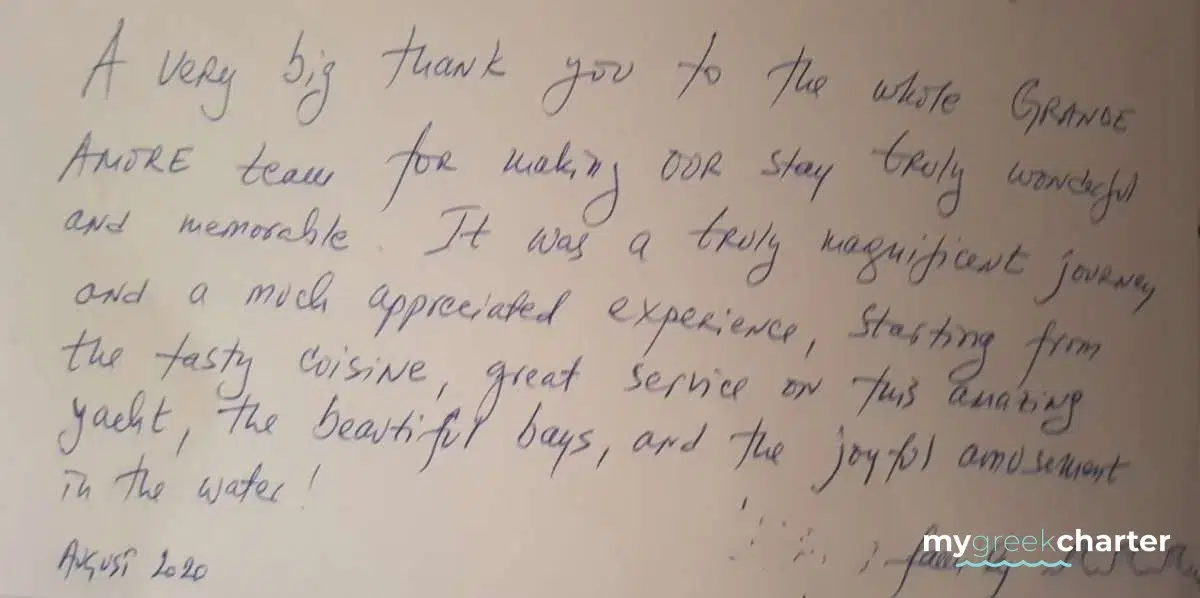 A very big thank you to the whole GRANDE
AMORE team for making our stay truly wonderful
and memorable. It was a truly magnificent journey
and a much appreciated experience, starting from
the tasty cuisine, great service on this amazing
yacht, the beautiful bays, and the joyful amusement
in the water!
August 2020
family
mygreekcharter